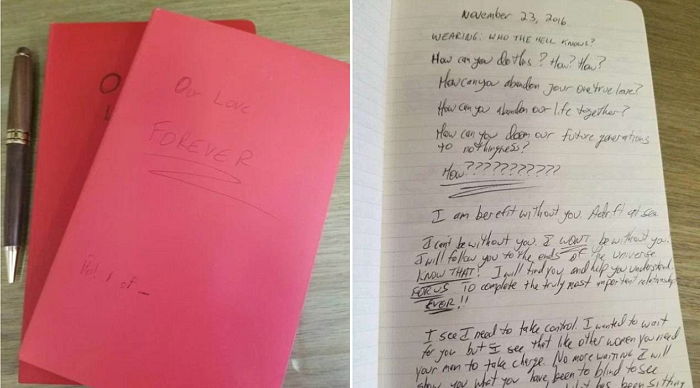 O
Our Love
FOREVER
1 of _
November 23, 2016
WEARING: WHO THE HELL KNOWS?
How can you do this? How? How?
How can you abandon your one true love?
How can you abandon our life together?
How can you doom our future generations
to nothingness?
How???????????
I am bereft without you. Adrift at sea
I can't be without you. I WON'T be without you.
I will follow you to the ends of the universe
KNOW THAT! I will find you and help you understand
FOR US to complete the truly most important relationship
EVER!!
I see I need to take control. I wanted to wait
for you but I see that like other women you need
your man to take charge. No more waiting. I will
show you what you have been to blind to see
it has been sitting